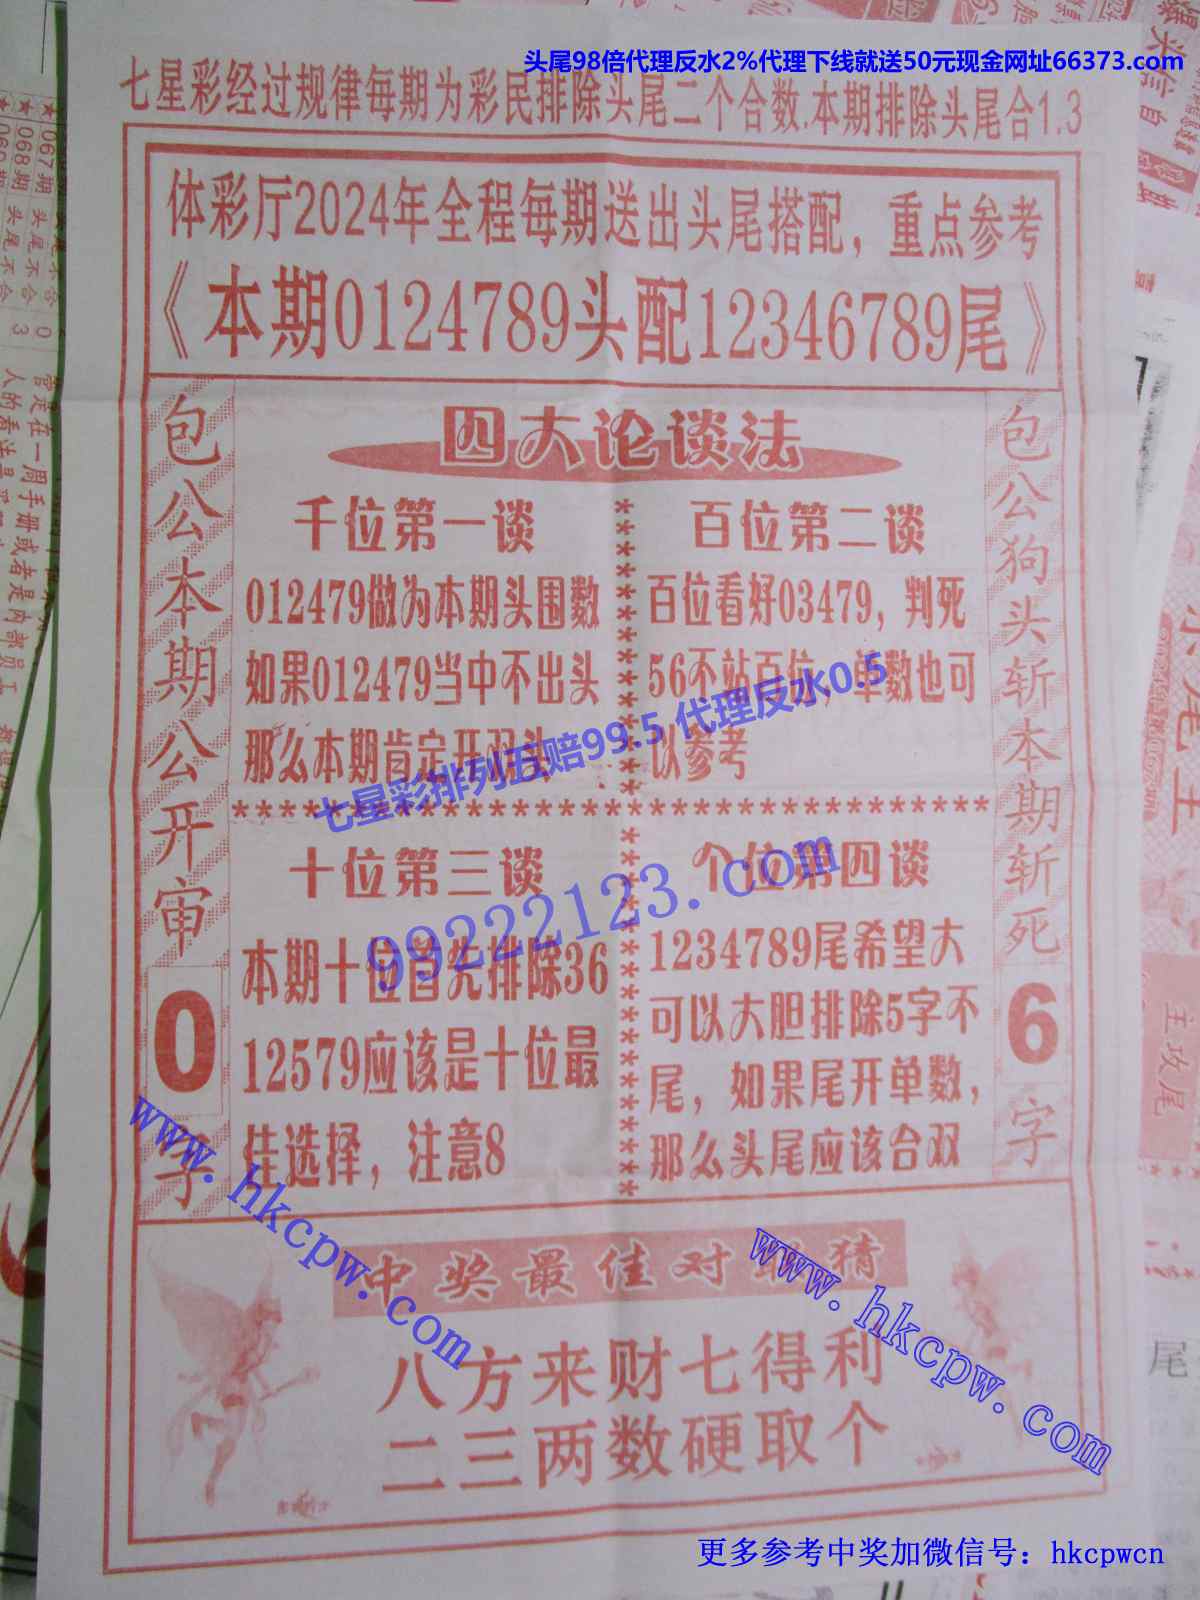 头尾98倍代理反水2%代理下线就送50元现金网址66373.com
七星彩经过规律每期为彩民排除头尾二个合数.本期排除头尾合1.3
体彩厅2024年全程每期送出头尾搭配，重点参考
《本期0124789头配12346789尾》
包公本期公开审0字
四大论谈法
千位第一谈
012479做为本期头围数
如果012479当中不出头
那么本期肯定开双头
百位第二谈
百位看好03479，判死
56不站百位，单数也可
以参考
七星彩排列五赔99.5 代理反水0.5
99222123.com
十位第三谈
本期十位首先排除36
12579应该是十位最
佳选择，注意8
个位第四谈
1234789尾希望大
可以大胆排除5字不
尾，如果尾开单数，
那么头尾应该合双
包公狗头斩本期斩死6字
www.hkcpw.com
www.hkcpw.com
中奖最佳对联猜
八方来财七得利
二三两数硬取个
更多参考中奖加微信号：hkcpwcn
067期
068期
头尾不合
头尾不合
0
3
主攻尾
尾